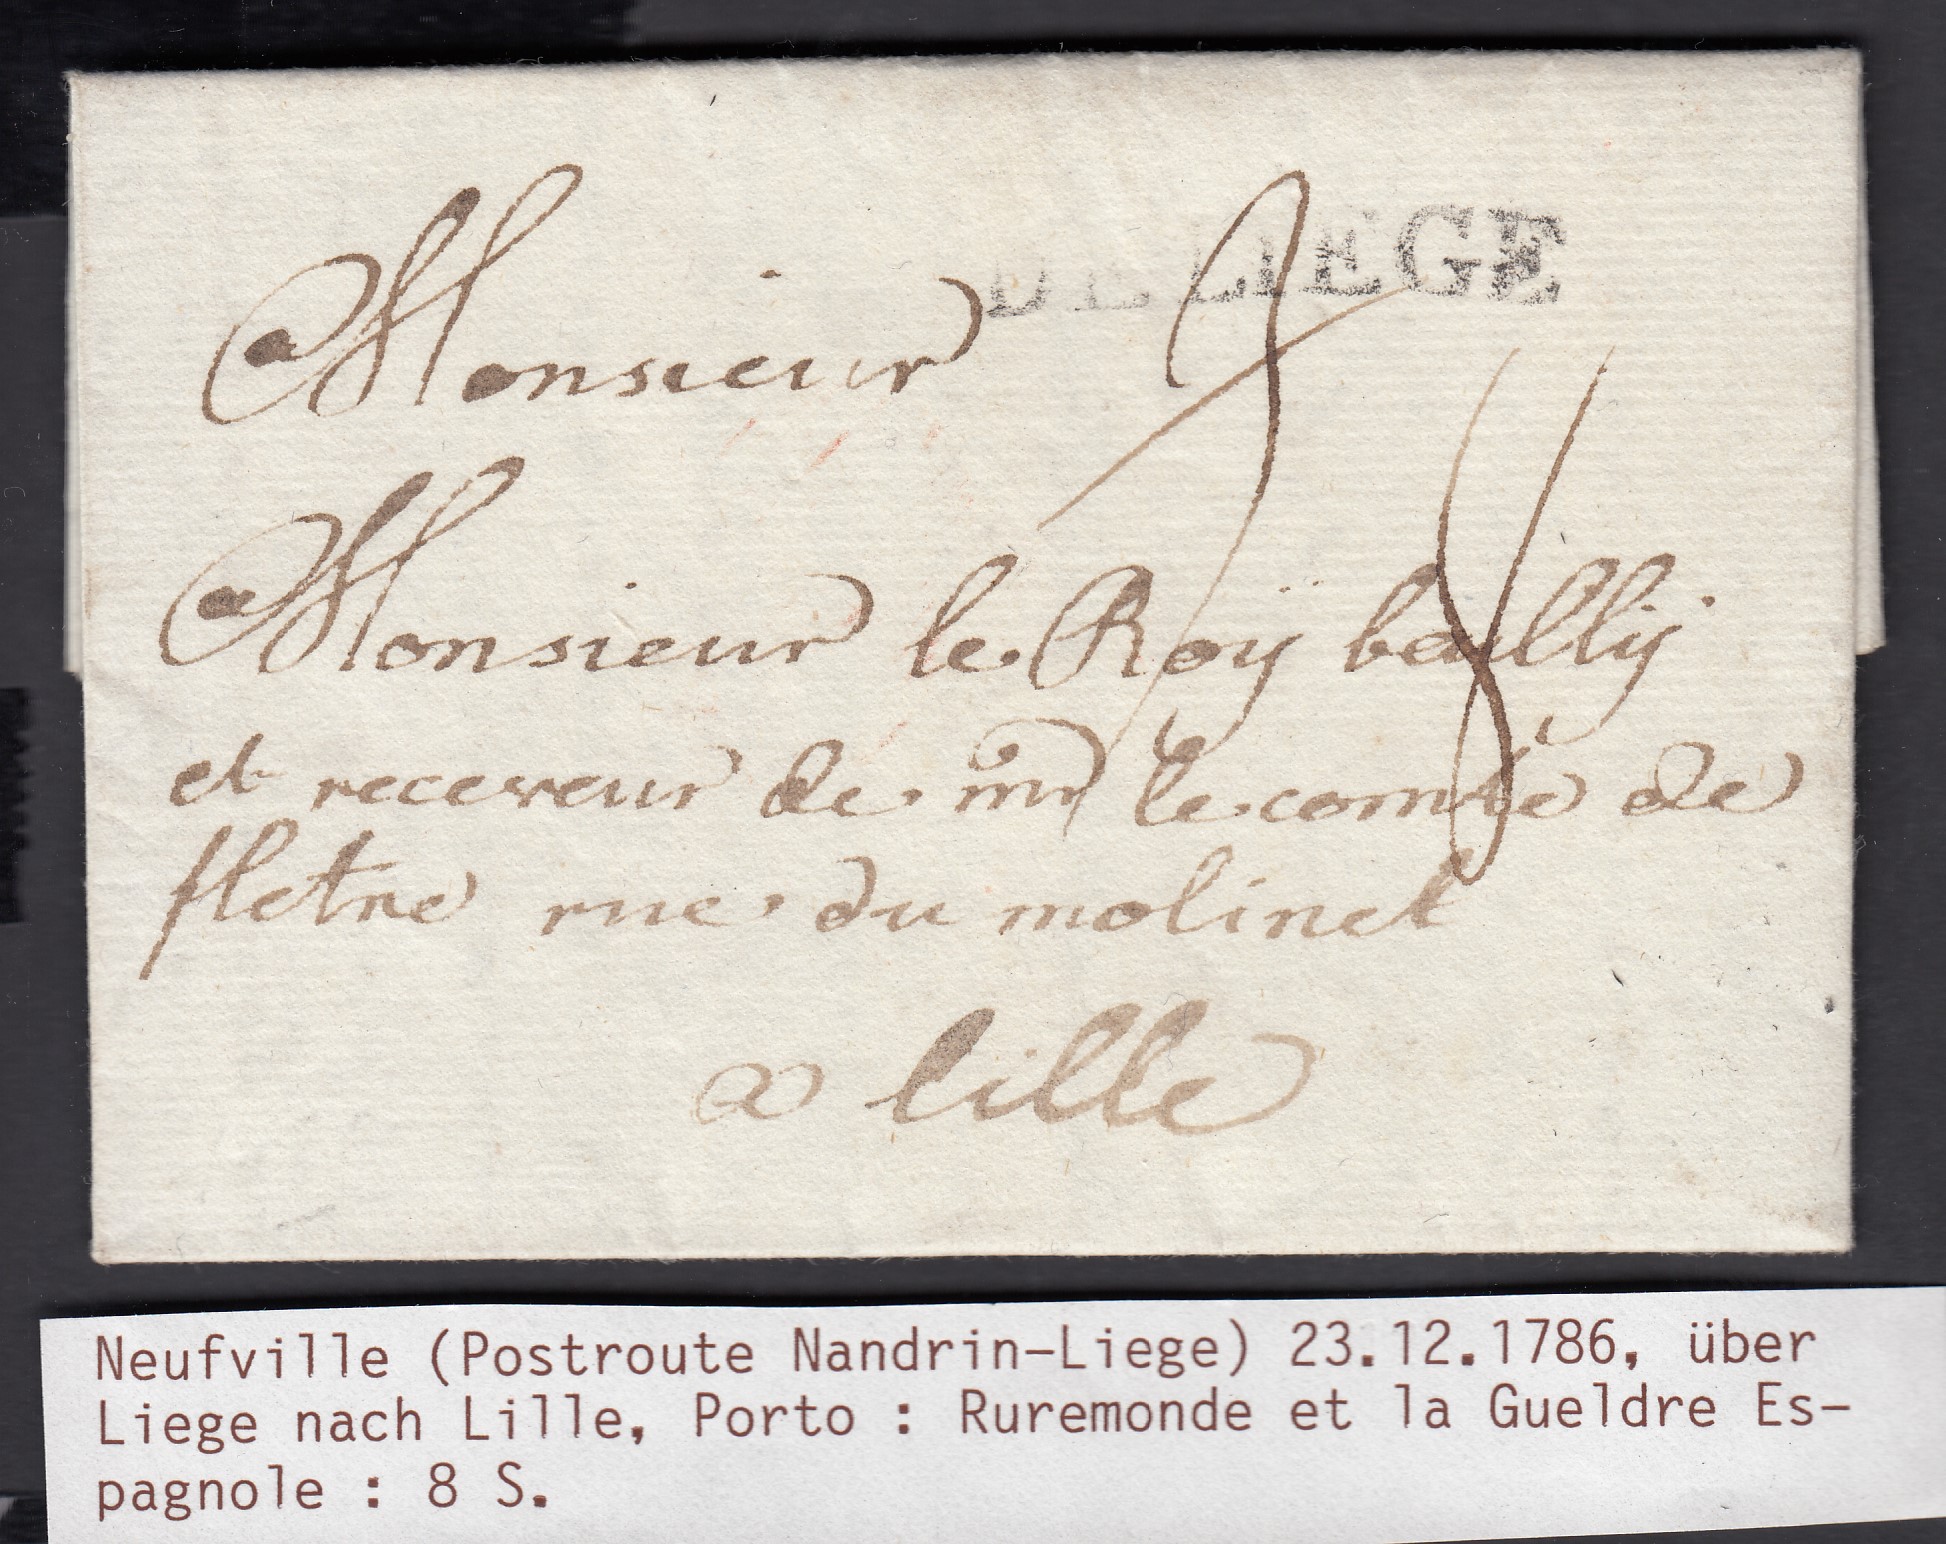 DE LIEGE
Monsieur
8
Monsieur le Roÿ bailly
et receveur de mr le comte de
fletre rue du molinet
a lille
Neufville (Postroute Nandrin-Liege) 23.12.1786, über
Liege nach Lille, Porto : Ruremonde et la Gueldre Es-
pagnole : 8 S.